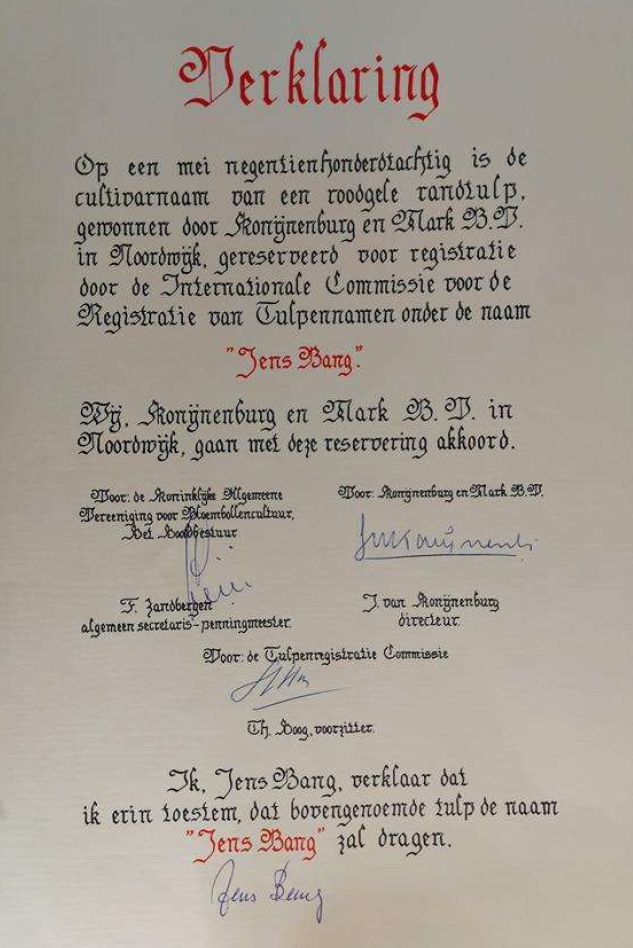 Verklaring
Op een mei negentienhonderdtachtig is de
cultivarnaam van een roodgele randtulp,
gewonnen door Konijnenburg en Mark B.V.
in Noordwijk, gereserveerd voor registratie
door de Internationale Commissie voor de
Registratie van Tulpennamen onder de naam
"Jens Bang".
Wij, Konijnenburg en Mark B.V. in
Noordwijk, gaan met deze reservering akkoord.
Voor: de Koninklijke Algemeene
Vereeniging voor Bloembollencultuur,
Het Hoofdbestuur
F. Zandbergen
algemeen secretaris-penningmeester.
Voor: Konijnenburg en Mark B.V.
J. van Konijnenburg
directeur.
Voor: de Tulpenregistratie Commissie
Th. Hoog, voorzitter.
Ik, Jens Bang, verklaar dat
ik erin toestem, dat bovengenoemde tulp de naam
"Jens Bang" zal dragen.
Jens Bang